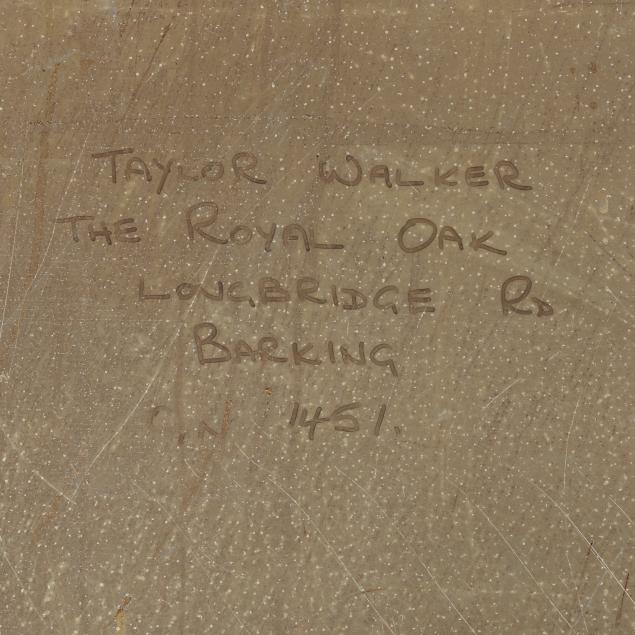 TAYLOR WALKER
THE ROYAL OAK
LONGBRIDGE RD
BARKING
C.N 1451.